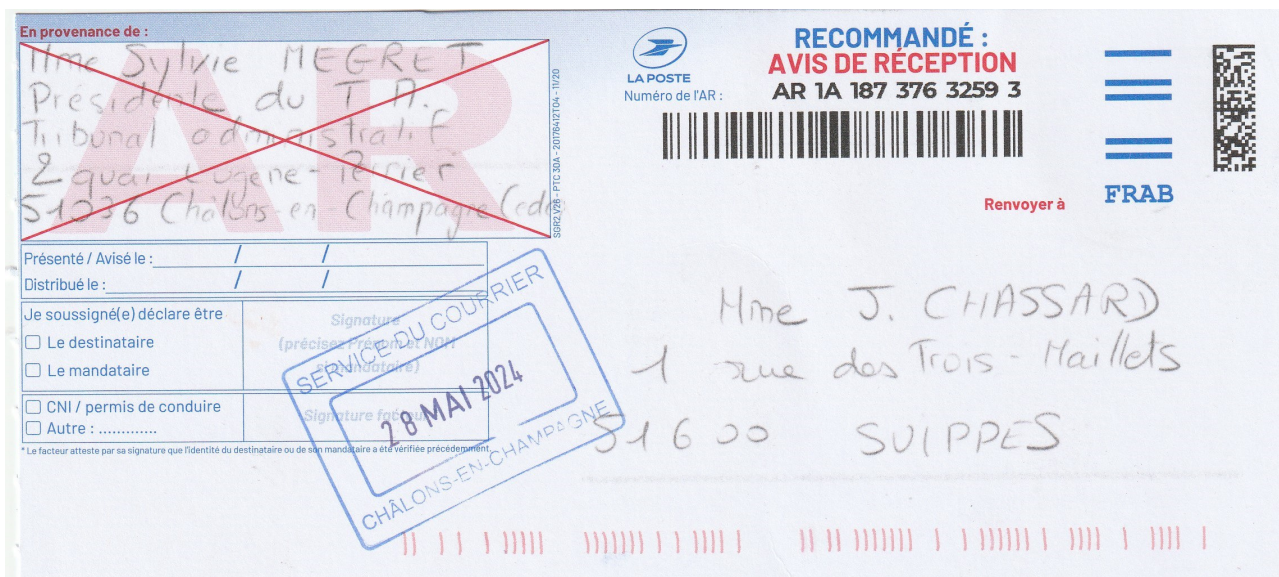 En provenance de :
Mme Sylvie MEGRET
Présidente du T A.
Tribunal administratif
2 quai Eugène-Perrier
51036 Châlons-en Champagne (cdex)
AR
SGR2 V26 - PTC 30A - 20176412T04 - 11/20
LA POSTE
RECOMMANDÉ :
AVIS DE RÉCEPTION
Numéro de l'AR : AR 1A 187 376 3259 3
Renvoyer à
FRAB
Présenté / Avisé le : / /
Distribué le : / /
Je soussigné(e) déclare être
Le destinataire
Le mandataire
Signature
(précisez Prénom et NOM
si mandataire)
CNI / permis de conduire
Autre : .............
Signature facteur*
* Le facteur atteste par sa signature que l'identité du destinataire ou de son mandataire a été vérifiée précédemment.
SERVICE DU COURRIER
28 MAI 2024
CHÂLONS-EN-CHAMPAGNE
Mme J. CHASSARD
1 rue des Trois-Maillets
51600 SUIPPES